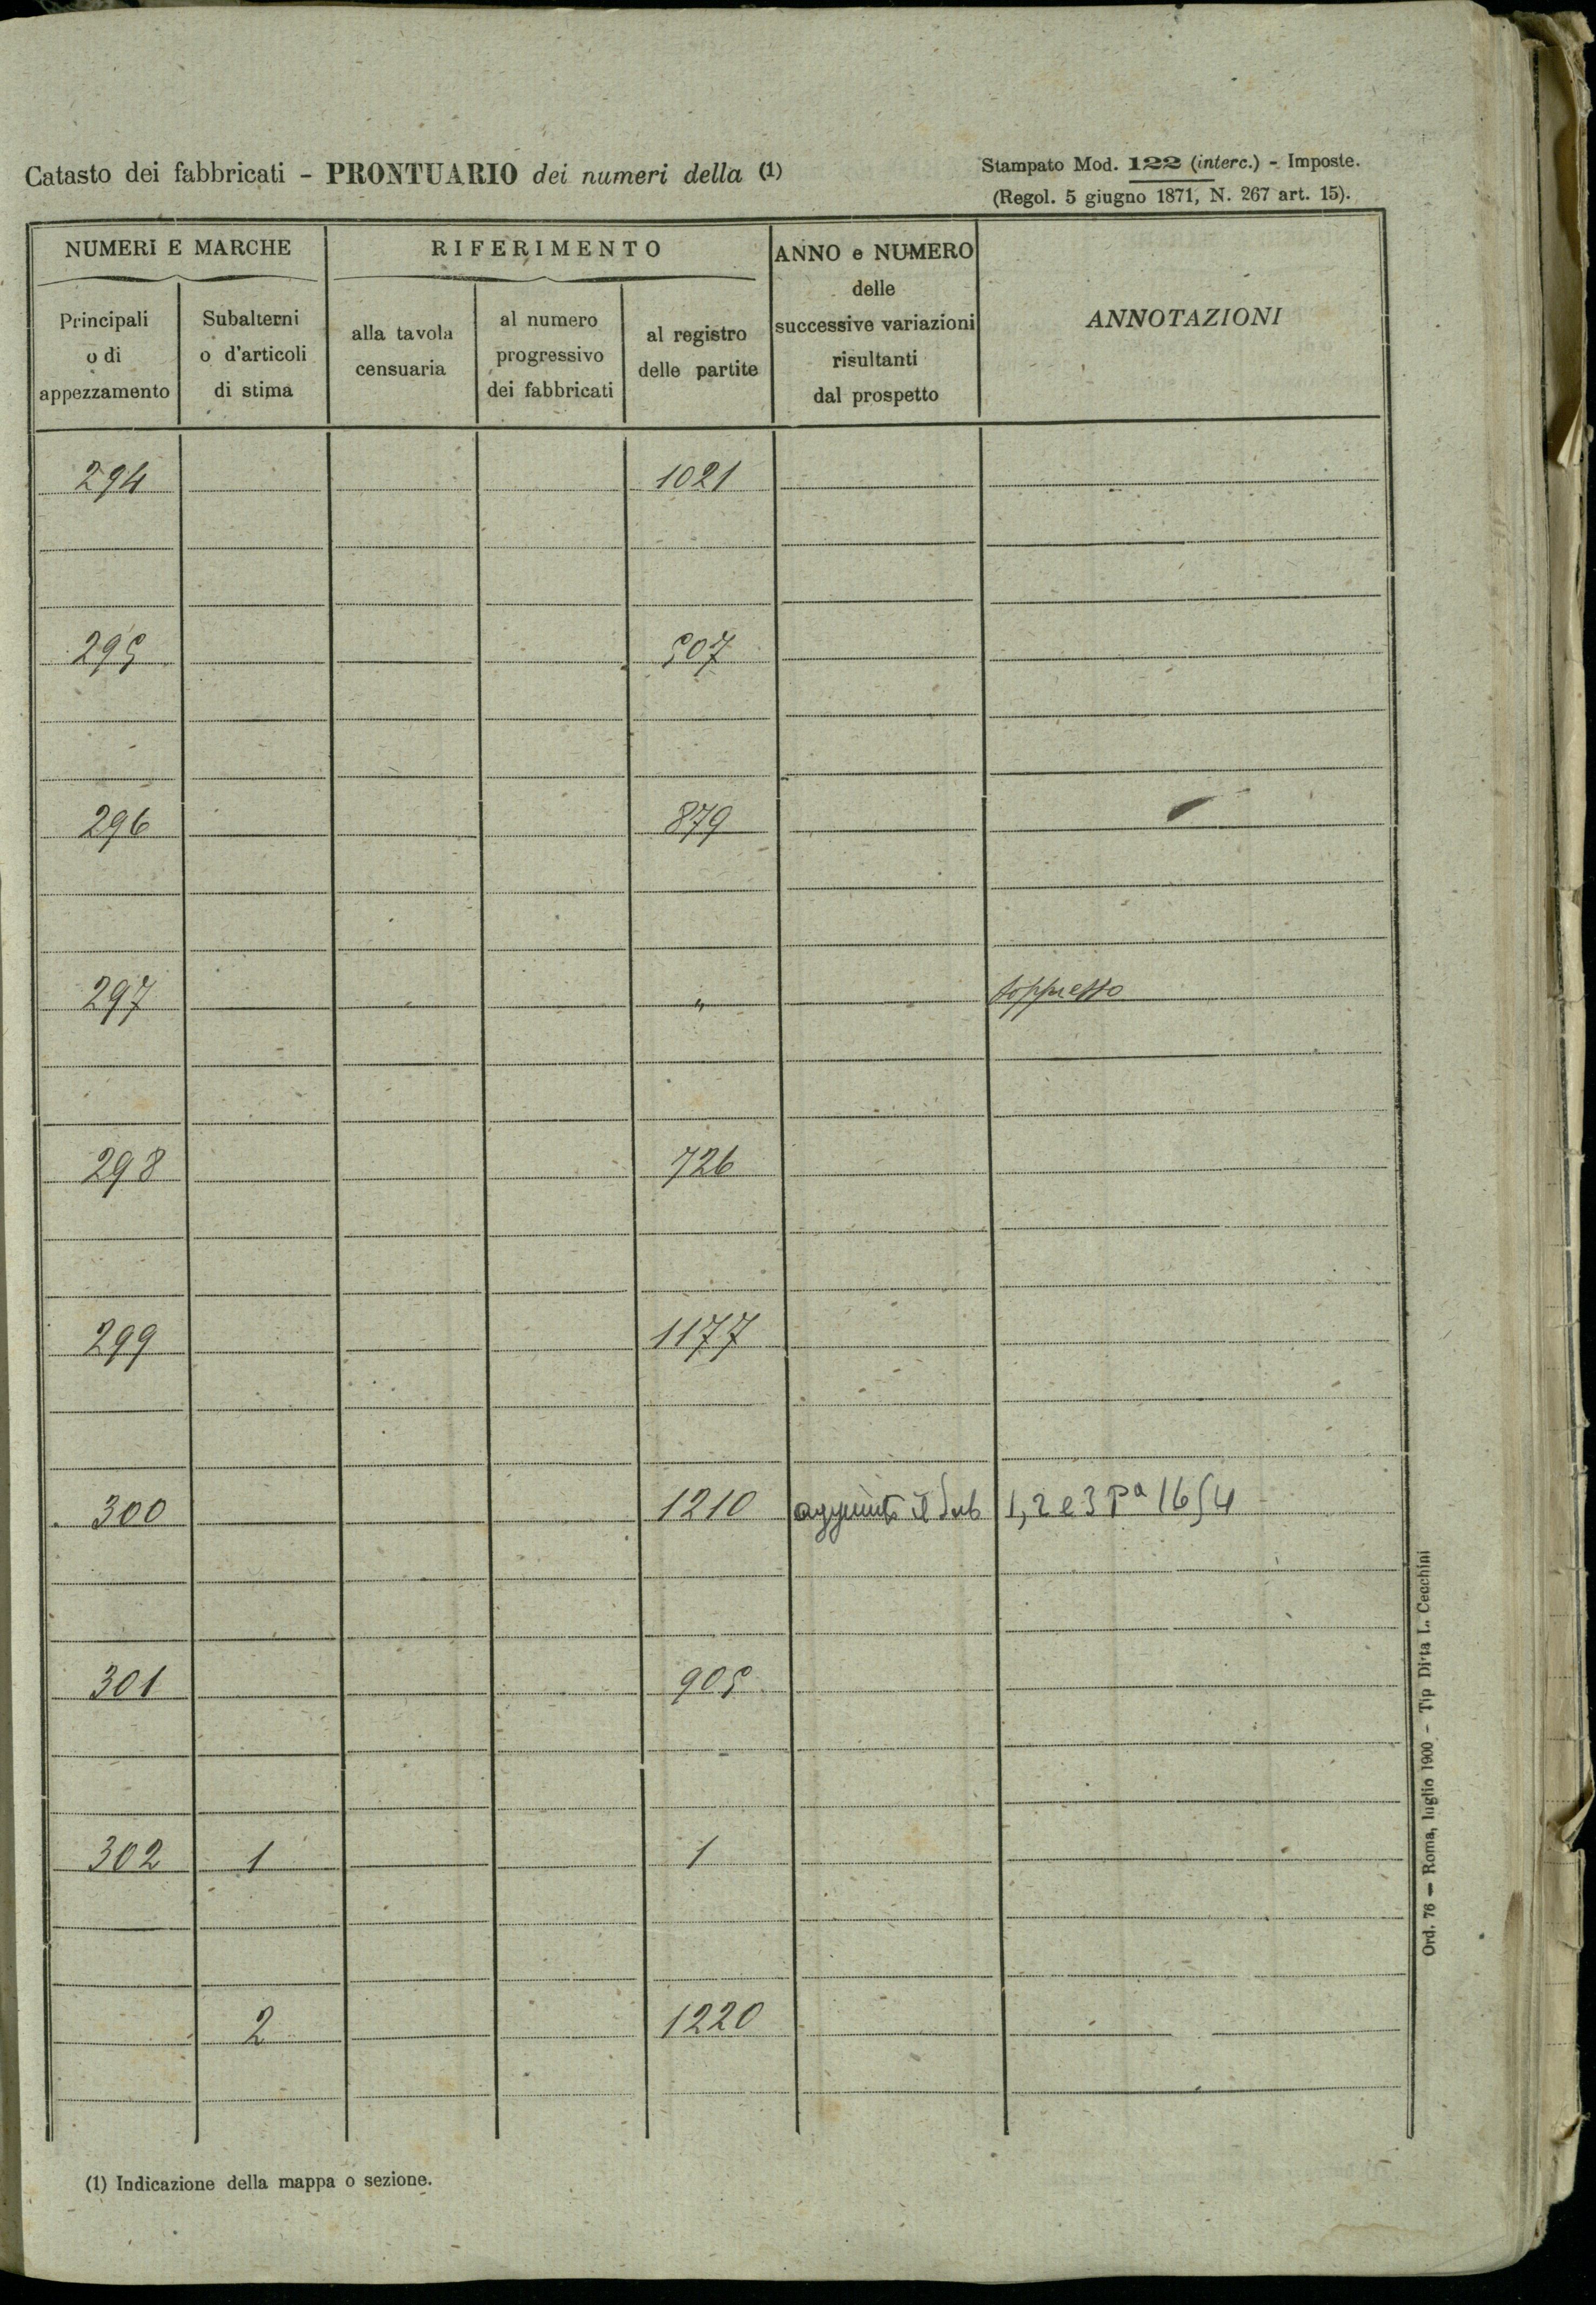 Catasto dei fabbricati - PRONTUARIO dei numeri della (1)
Stampato Mod. 122 (interc.) - Imposte.
(Regol. 5 giugno 1871, N. 267 art. 15).
NUMERI E MARCHE
RIFERIMENTO
ANNO e NUMERO
delle
successive variazioni
risultanti
dal prospetto
ANNOTAZIONI
Principali
o di
appezzamento
Subalterni
o d'articoli
di stima
alla tavola
censuaria
al numero
progressivo
dei fabbricati
al registro
delle partite
294 1021
295 507
296 879
297 " soppresso
298 726
299 1177
300 1210 aggiunto il Sub 1, 2 e 3 Pª 1654
301 905
302 1 1
2 1220
(1) Indicazione della mappa o sezione.
Ord. 76 - Roma, luglio 1900 - Tip Ditta L. Cecchini